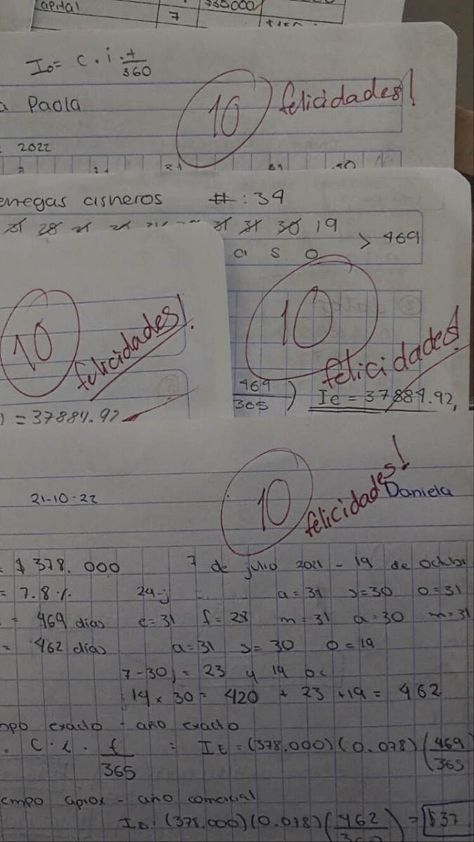 apital
7
$35000
Io = C . i . t/360
a Paola
10 felicidades!
2022
enegas cisneros #: 34
28 31 30 19
a s o > 469
10 felicidades!
10 felicidades!
469/365 ) Ie = 37884.92,
) = 37884.92
21-10-22
10 felicidades!
Daniela
= $ 378.000 7 de julio 2021 - 19 de octub
= 7.8% 24-j a=31 s=30 o=31
= 469 dias e=31 f=28 m=31 a=30 m=31
= 462 dias a=31 s=30 o=19
7-30j = 23 y 19 oc
14 x 30 = 420 + 23 + 19 = 462
mpo exacto - año exacto
. C . i . t/365 = IE = (378,000) (0.078) (469/365
empo aprox - año comercial
Io: (378,000) (0.078) (462/360) = $37